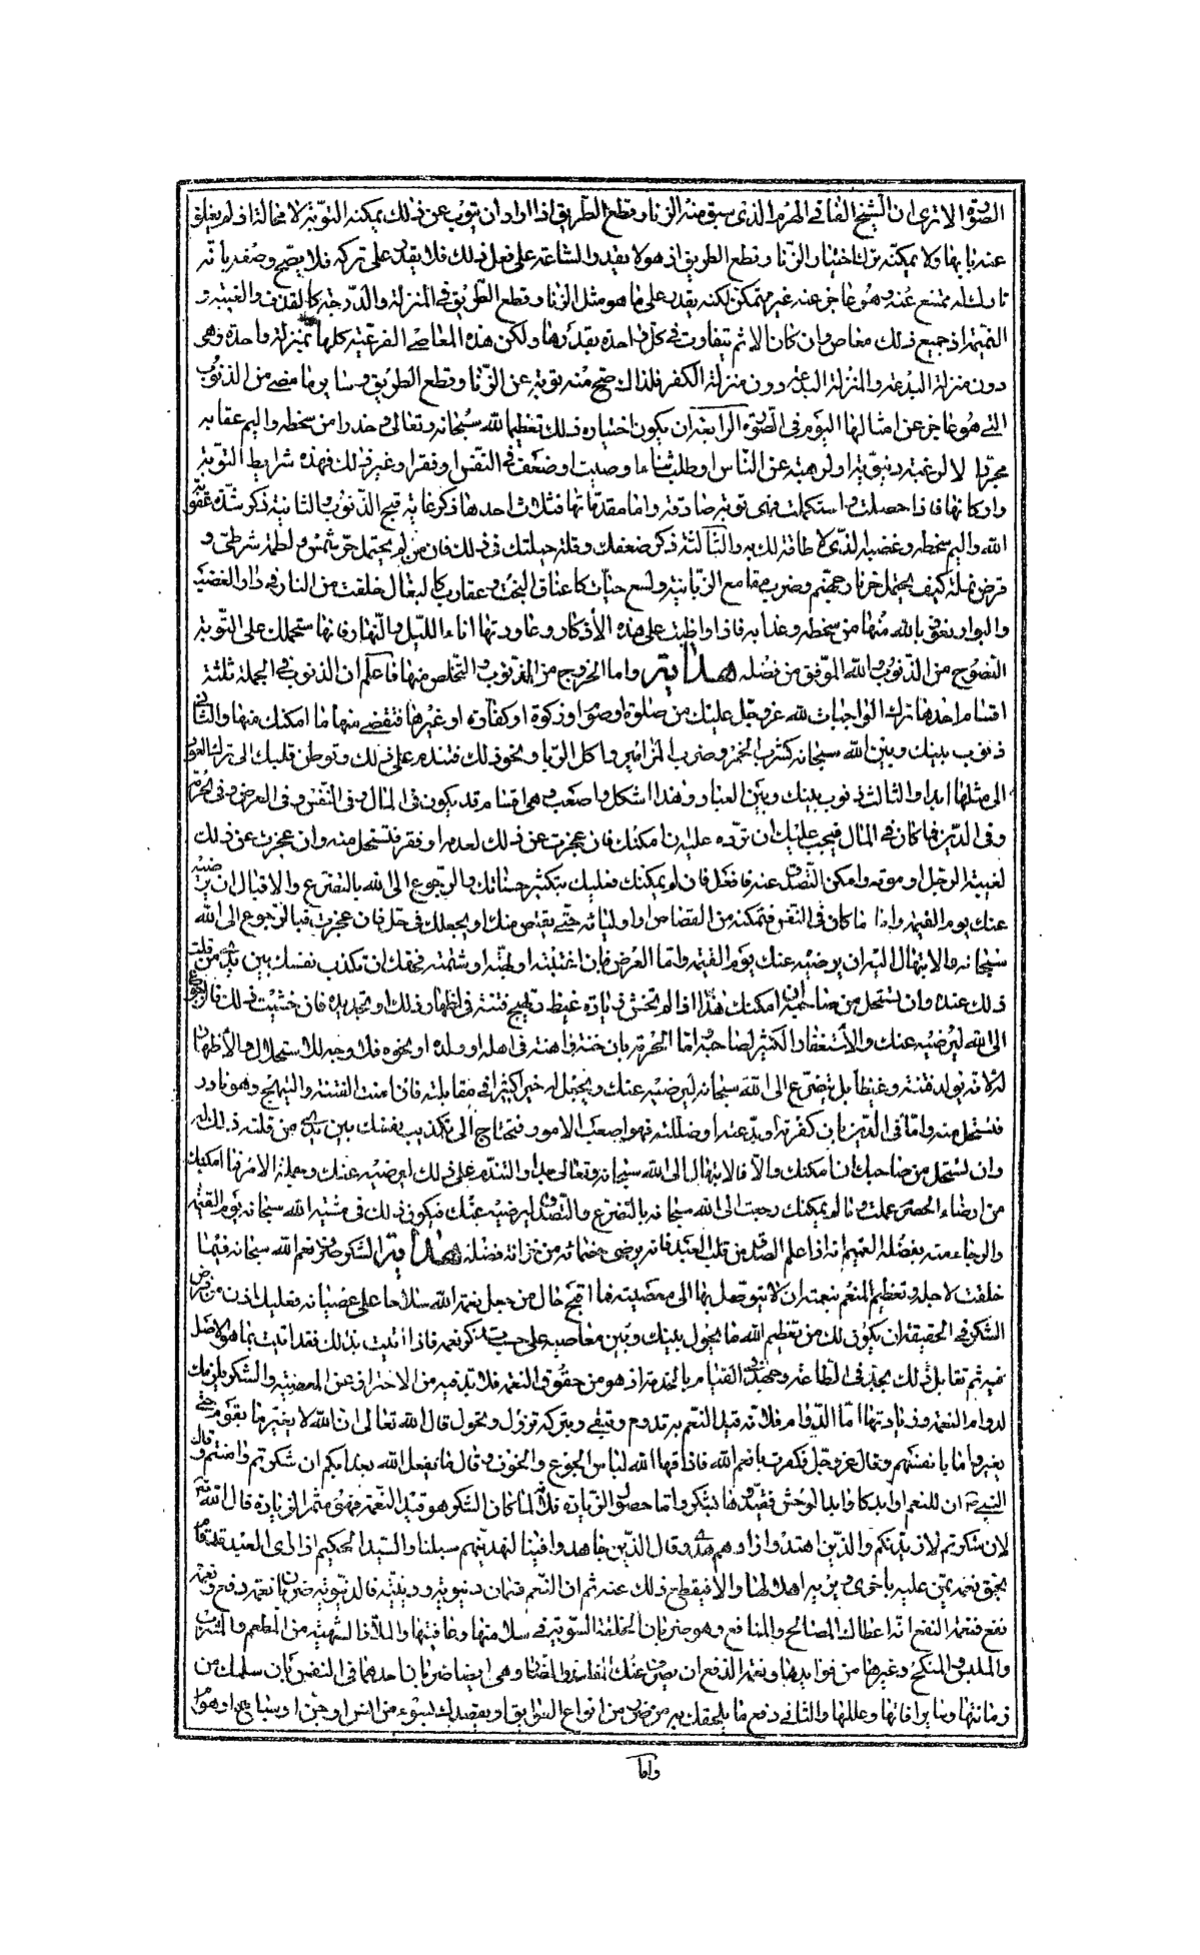 الصورة الا ترى ان الشيخ الفاني الهرم الذى سبق منه الزنا و قطع الطريق اذا اراد ان يتوب عن ذلك يمكنه التوبة لا محالة اذ لم يغلق
عنه بابها ولا يمكنه ترك اختيار الزنا و قطع الطريق اذ هو لا يقدر الساعة على فعل ذلك فلا يقدر على تركه فلا يصح وصفه بانه
تارك له ممتنع عنه و هو عاجز عنه غير متمكن لكنه يقدر على ما هو مثل الزنا و قطع الطريق في المنزلة والدرجة كالقذف والغيبة و
النميمة اذ جميع ذلك معاص وان كان الاثم يتفاوت في كل واحدة بقدرها ولكن هذه المعاصي الفرعية كلها بمنزلة واحدة وهى
دون منزلة البدعة والمنزلة البدعة دون منزلة الكفر فلذلك صح منه توبته عن الزنا و قطع الطريق و ساير ما مضى من الذنوب
التى هو عاجز عن امثالها اليوم فى الصورة الرابعة ان يكون اختياره ذلك تعظيما لله سبحانه وتعالى وحذرا من سخطه واليم عقابه
مجردا لا لرغبة دنيوية او لرهبة عن الناس او طلب ثناء او صيت او ضعف في النفس او فقر او غير ذلك فهذه شرايط التوبة
واركانها فاذا حصلت و استكملت فهى توبة صادقة واما مقدماتها فثلاث احدها ذكر غاية قبح الذنوب والثانية ذكر شدة عقوبة
الله واليم سخطه وغضبه الذى لا طاقة لك به والثالثة ذكر ضعفك وقلة حيلتك فى ذلك فان من لم يحتمل حر شمس ولطمة شرطى و
قرص نملة كيف يحتمل حر نار جهنم وضرب مقامع الزبانية ولسع حيات كاعناق البخت وعقارب كالبغال خلقت من النار فى دار الغضب
والبوار نعوذ بالله منها من سخطه وعذابه فاذا واظبت على هذه الأذكار وعاودتها اناء الليل والنهار فانها ستحملك على التوبة
النصوح من الذنوب والله الموفق من فضله هداية واما الخروج من الذنوب والتخلص منها فاعلم ان الذنوب في الجملة ثلثة
اقسام احدها ترك الواجبات لله عز وجل عليك من صلوة او صوم او زكوة او كفارة او غيرها فتقضى منها ما امكنك منها والثانى
ذنوب بينك وبين الله سبحانه كشرب الخمر وضرب المزامير واكل الربا ونحو ذلك فتندم على ذلك وتوطن قلبك الى ترك العود
الى مثلها ابدا والثالث ذنوب بينك وبين العباد وهذا اشكل واصعب وهى اقسام قد يكون فى المال و فى النفس و فى العرض و فى الحرمة
وفى الدين فما كان فى المال فيجب عليك ان ترده عليه ان امكنك فان عجزت عن ذلك لعدم او فقر فتستحل منه وان عجزت عن ذلك
لغيبة الرجل او موته وامكن التصدق عنه فافعل فان لم يمكنك فعليك بتكثير حسناتك والرجوع الى الله بالتضرع والابتهال ان يرضيه
عنك يوم القيمة واما ما كان فى النفس فتمكنه من القصاص او اوليائه حتى يقتص منك او يجعلك فى حل فان عجزت فبالرجوع الى الله
سبحانه والابتهال اليه ان يرضيه عنك يوم القيمة واما العرض فان اغتبته او بهته او شتمته فحقك ان تكذب نفسك بين يدى من قلت
ذلك عنده وان تستحل من صاحبه ان امكنك هذا اذا لم تخش زيادة غيظ وتهيج فتنة فى اظهار ذلك او تجديده فان خشيت ذلك فالرجوع
الى الله ليرضيه عنك والاستغفار الكثير لصاحبه اما الحرمة بان خنته فى اهله او ولده او نحوه فلا وجه للاستحلال والأظهار
لانه يولد فتنة وغيظا بل تتضرع الى الله سبحانه ليرضيه عنك ويجعل له خيرا كثيرا فى مقابلته فان امنت الفتنة والتهيج وهو نادر
فتستحل منه واما فى الدين بان كفرته او بدعته او ضللته فهو اصعب الامور فتحتاج الى تكذيب نفسك بين يدى من قلته ذلك له
وان تستحل من صاحبك ان امكنك والا فالابتهال الى الله سبحانه وتعالى جدا والتندم على ذلك ليرضيه عنك وجملة الامر فما امكنك
من ارضاء الخصم عملت وما لم يمكنك رجعت الى الله سبحانه بالتضرع والتصدق ليرضيه عنك فيكون ذلك فى مشية الله سبحانه يوم القيمة
والرجاء منه بفضله العظيم انه اذا علم الصدق من قلب العبد فانه يرضى خصمائه من خزانة فضله هداية الشكر صرف نعم الله سبحانه فيما
خلقت لاجله وتعظيم المنعم بنعمته ان لا يتوصل بها الى معصيته فما اقبح حال من جعل نعمة الله سلاحا على عصيانه فعليك اذن من فرض
الشكر فى الحقيقة ان يكون لك من تعظيم الله ما يحول بينك وبين معاصيه على حسب تذكر نعمه فاذا اتيت بذلك فقد اتيت بما هو الاصل
فيه ثم تقابل ذلك بجد فى الطاعة وجهد فى القيام بالخدمة اذ هو من حقوق النعمة فلا بد فيه من الاحتراز عن المعصية والشكر يلزمك
لدوام النعمة وزيادتها اما الدوام فلانه قيد النعم به تدوم وتبقى وبتركه تزول وتحول قال الله تعالى ان الله لا يغير ما بقوم حتى
يغيروا ما بانفسهم وقال عز وجل فكفرت بانعم الله فاذاقها الله لباس الجوع والخوف وقال ما يفعل الله بعذابكم ان شكرتم وامنتم وقال
النبى ص ان للنعم اوابد كاوابد الوحش فقيدوها بالشكر واما حصول الزيادة فلانه لما كان الشكر هو قيد النعمة فهو يثمر الزيادة قال الله تعالى
لان شكرتم لازيدنكم والذين اهتدوا زادهم هدى وقال الذين جاهدوا فينا لنهدينهم سبلنا والسيد الحكيم اذا راى العبد قد قام
بحق نعمة يمن عليه باخرى ويراه اهلا لها والا فيقطع ذلك عنه ثم ان النعم قسمان دنيوية ودينية فالدنيوية ضربان نعمة دفع ونعمة
نفع فنعمة النفع انه اعطاك المصالح والمنافع وهو ضربان الخلقة السوية فى سلامتها وعافيتها والملاذ الشهية من المطعم والمشرب
والملبس والمنكح وغيرها من فوايدها ونعمة الدفع ان يصرف عنك المفاسد والمضار وهى ايضا ضربان احدهما فى النفس بان سلمك من
زمانتها وساير افاتها وعللها والثانى دفع ما يلحقك به من ضرر من انواع العوايق او يقصدك بسوء من انس او جن او سباع او هوام
واما